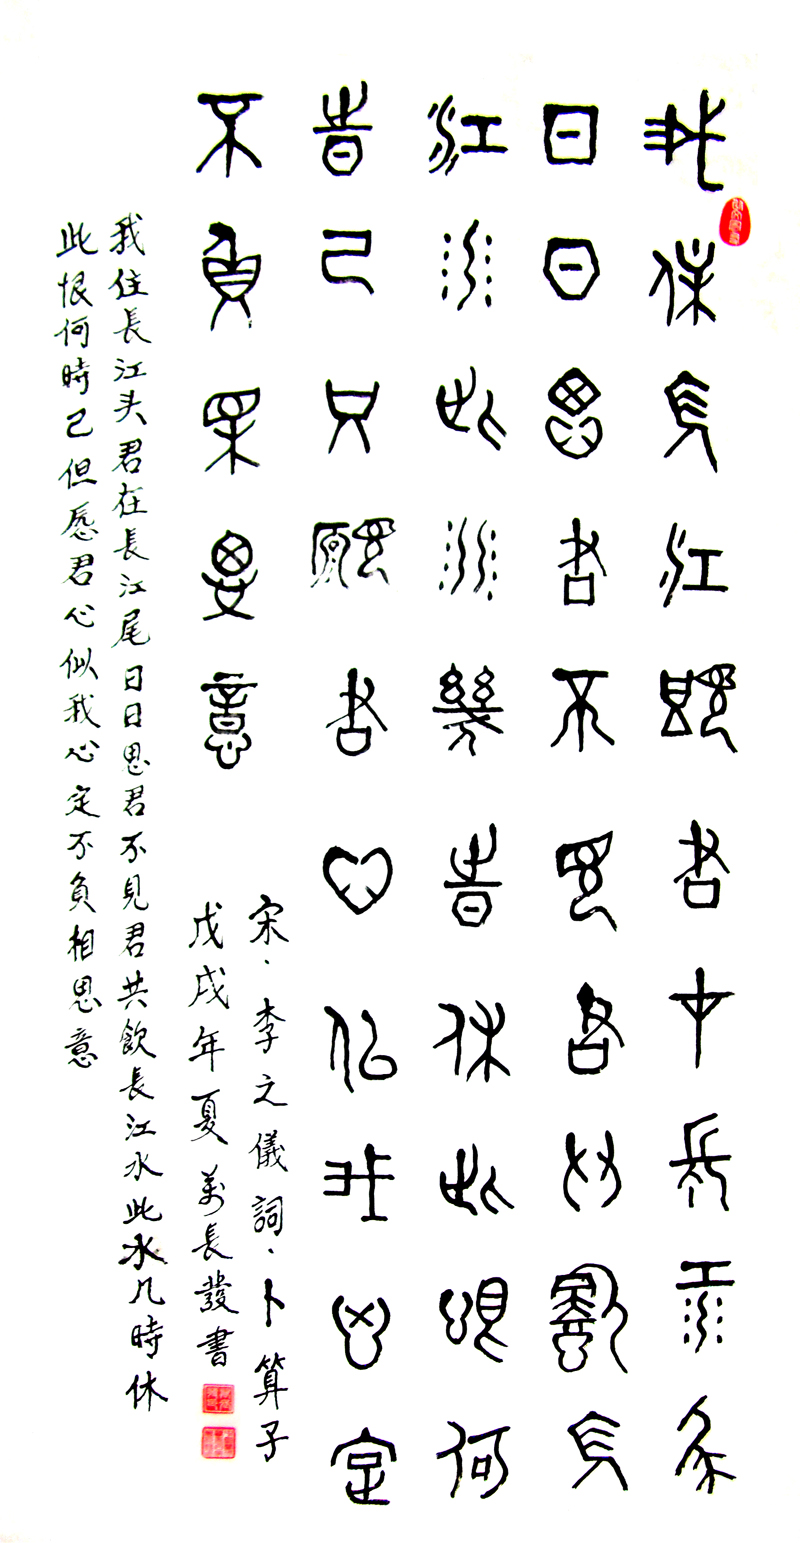 我住長江頭君在長江尾
日日思君不見君共飲長
江水此水幾時休此恨何
時已只願君心似我心定
不負相思意
宋·李之儀詞·卜算子
戊戌年夏萬長發書
我住長江头君在長江尾日日思君不見君共飲長江水此水几時休
此恨何時已但愿君心似我心定不負相思意